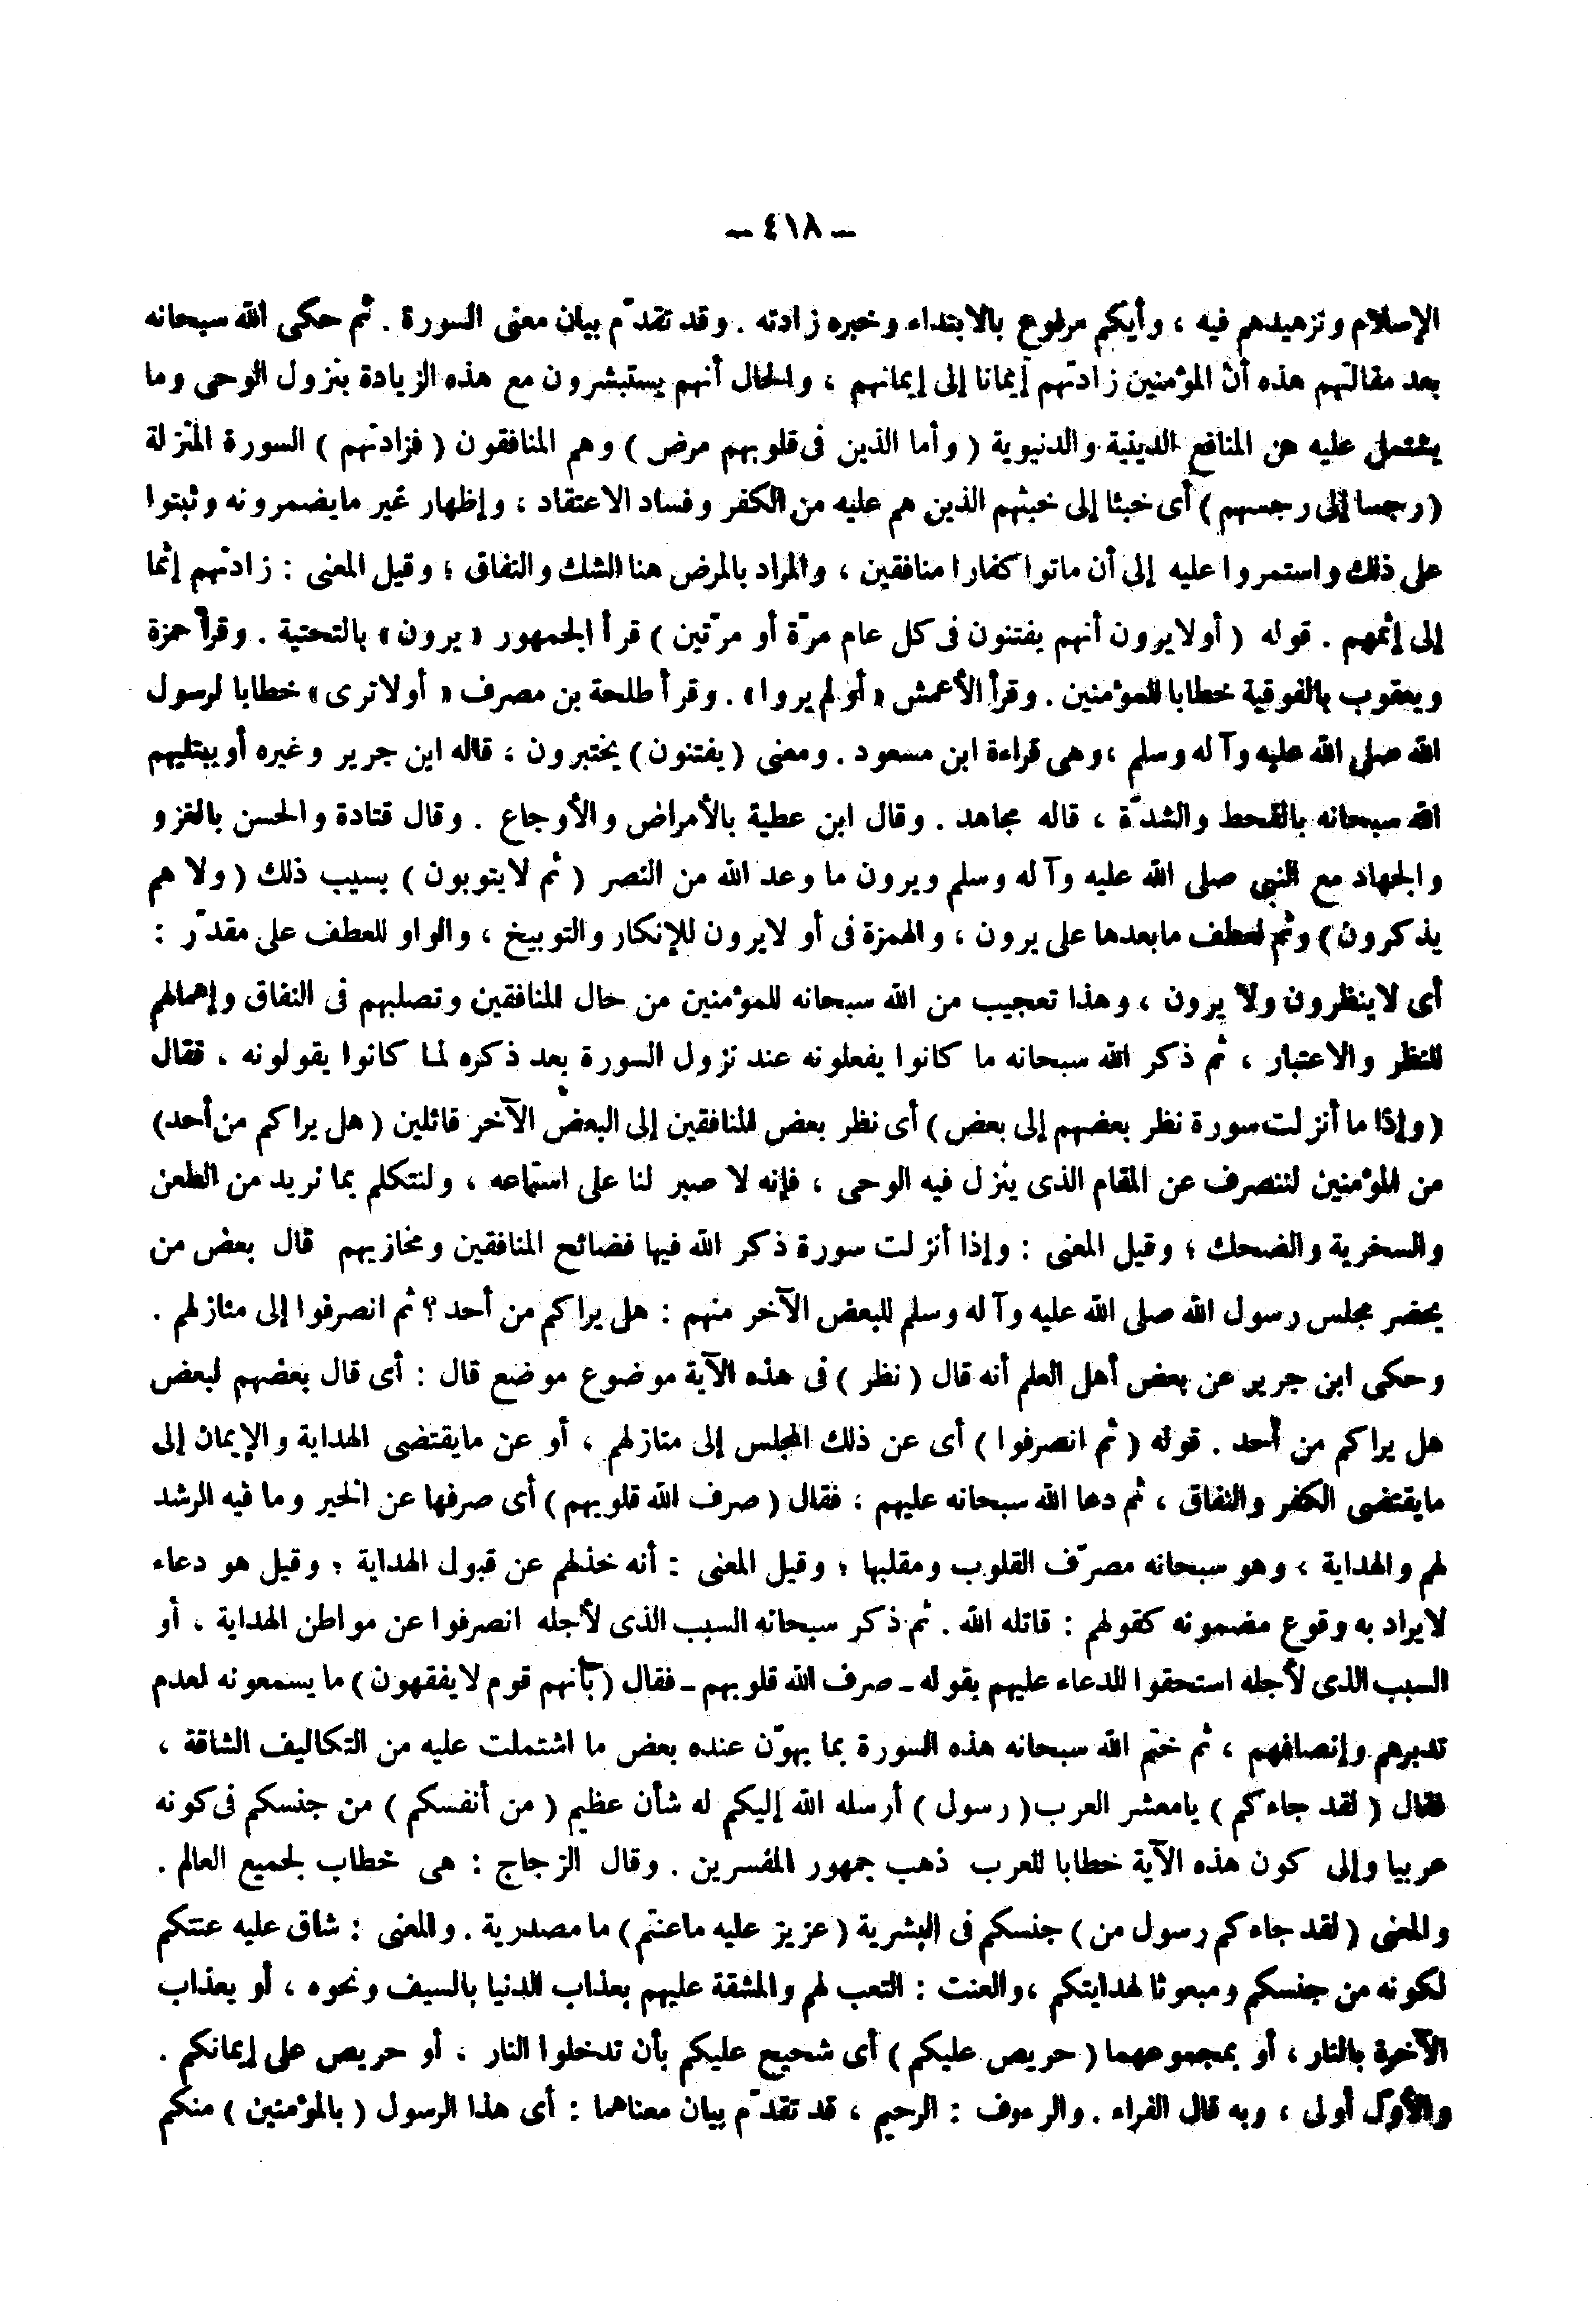 ــ ٤١٨ ــ
الإسلام وتزهيدهم فيه ، وأيكم مرفوع بالابتداء وخبره زادته . وقد تقدّم بيان معنى السورة . ثم حكى الله سبحانه
بعد مقالتهم هذه أن المؤمنين زادتهم إيمانا إلى إيمانهم ، والحال أنهم يستبشرون مع هذه الزيادة بنزول الوحى وما
يشتمل عليه من المنافع الدينية والدنيوية ( وأما الذين فى قلوبهم مرض ) وهم المنافقون ( فزادتهم ) السورة المنزلة
( رجسا إلى رجسهم ) أى خبثا إلى خبثهم الذين هم عليه من الكفر وفساد الاعتقاد ، وإظهار غير مايضمرونه وثبتوا
على ذلك واستمروا عليه إلى أن ماتوا كفارا منافقين ، والمراد بالمرض هنا الشك والنفاق ؛ وقيل المعنى : زادتهم إثما
إلى إثمهم . قوله ( أولايرون أنهم يفتنون فى كل عام مرّة أو مرّتين ) قرأ الجمهور « يرون » بالتحتية . وقرأ حمزة
ويعقوب بالفوقية خطابا للمؤمنين . وقرأ الأعمش « أو لم يروا » . وقرأ طلحة بن مصرف « أولاترى » خطابا لرسول
الله صلى الله عليه وآله وسلم ، وهى قراءة ابن مسعود . ومعنى ( يفتنون ) يختبرون ، قاله ابن جرير وغيره أو يبتليهم
الله سبحانه بالقحط والشدّة ، قاله مجاهد . وقال ابن عطية بالأمراض والأوجاع . وقال قتادة والحسن بالغزو
والجهاد مع النبى صلى الله عليه وآله وسلم ويرون ما وعد الله من النصر ( ثم لايتوبون ) بسبب ذلك ( ولا هم
يذكرون ) وثم لعطف مابعدها على يرون ، والهمزة فى أو لايرون للإنكار والتوبيخ ، والواو للعطف على مقدّر :
أى لاينظرون ولا يرون ، وهذا تعجيب من الله سبحانه للمؤمنين من حال المنافقين وتصلبهم فى النفاق وإهمالهم
للنظر والاعتبار ، ثم ذكر الله سبحانه ما كانوا يفعلونه عند نزول السورة بعد ذكره لما كانوا يقولونه ، فقال
( وإذا ما أنزلت سورة نظر بعضهم إلى بعض ) أى نظر بعض المنافقين إلى البعض الآخر قائلين ( هل يراكم من أحد )
من المؤمنين لننصرف عن المقام الذى ينزل فيه الوحى ، فإنه لا صبر لنا على استماعه ، ولنتكلم بما نريد من الطعن
والسخرية والضحك ؛ وقيل المعنى : وإذا أنزلت سورة ذكر الله فيها فضائح المنافقين ومخازيهم قال بعض من
يحضر مجلس رسول الله صلى الله عليه وآله وسلم للبعض الآخر منهم : هل يراكم من أحد ؟ ثم انصرفوا إلى منازلهم .
وحكى ابن جرير عن بعض أهل العلم أنه قال ( نظر ) فى هذه الآية موضوع موضع قال : أى قال بعضهم لبعض
هل يراكم من أحد . قوله ( ثم انصرفوا ) أى عن ذلك المجلس إلى منازلهم ، أو عن مايقتضى الهداية والإيمان إلى
مايقتضى الكفر والنفاق ، ثم دعا الله سبحانه عليهم ، فقال ( صرف الله قلوبهم ) أى صرفها عن الخير وما فيه الرشد
لهم والهداية ، وهو سبحانه مصرّف القلوب ومقلبها ؛ وقيل المعنى : أنه خذلهم عن قبول الهداية ؛ وقيل هو دعاء
لايراد به وقوع مضمونه كقولهم : قاتله الله . ثم ذكر سبحانه السبب الذى لأجله انصرفوا عن مواطن الهداية ، أو
السبب الذى لأجله استحقوا الدعاء عليهم بقوله ــ صرف الله قلوبهم ــ فقال ( بأنهم قوم لايفقهون ) ما يسمعونه لعدم
تدبرهم وإنصافهم ، ثم ختم الله سبحانه هذه السورة بما يهوّن عنده بعض ما اشتملت عليه من التكاليف الشاقة ،
فقال ( لقد جاءكم ) يامعشر العرب ( رسول ) أرسله الله إليكم له شأن عظيم ( من أنفسكم ) من جنسكم فى كونه
عربيا وإلى كون هذه الآية خطابا للعرب ذهب جمهور المفسرين . وقال الزجاج : هى خطاب لجميع العالم .
والمعنى ( لقد جاءكم رسول من ) جنسكم فى البشرية ( عزيز عليه ماعنتم ) ما مصدرية . والمعنى : شاق عليه عنتكم
لكونه من جنسكم ومبعوثا لهدايتكم ، والعنت : التعب لهم والمشقة عليهم بعذاب الدنيا بالسيف ونحوه ، أو بعذاب
الآخرة بالنار ، أو بمجموعهما ( حريص عليكم ) أى شحيح عليكم بأن تدخلوا النار ، أو حريص على إيمانكم .
والأوّل أولى ، وبه قال الفراء . والرءوف : الرحيم ، قد تقدّم بيان معناهما : أى هذا الرسول ( بالمؤمنين ) منكم